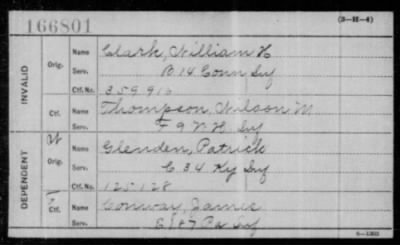 166801
(3-H-4)
INVALID
Orig.
Name Clark, William H
Serv. B. 14 Conn Inf
Ctf. No. 359,916
Ctf.
Name Thompson, Wilson M
Serv. F 9 N. H. Inf
DEPENDENT
Orig.
Name Glenden, Patrick
Serv. C 34 Ky Inf
Ctf. No. 125,128
Ctf.
Name Conway, James
Serv. E 187 Pa Inf